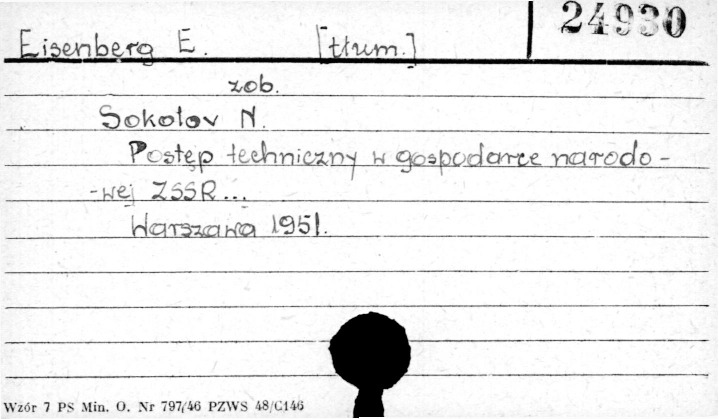 24930
Eisenberg E. [tłum.]
zob.
Sokołov N.
Postęp techniczny w gospodarce narodo-
-wej ZSSR...
Warszawa 1951.
Wzór 7 PS Min. O. Nr 797/46 PZWS 48/C146